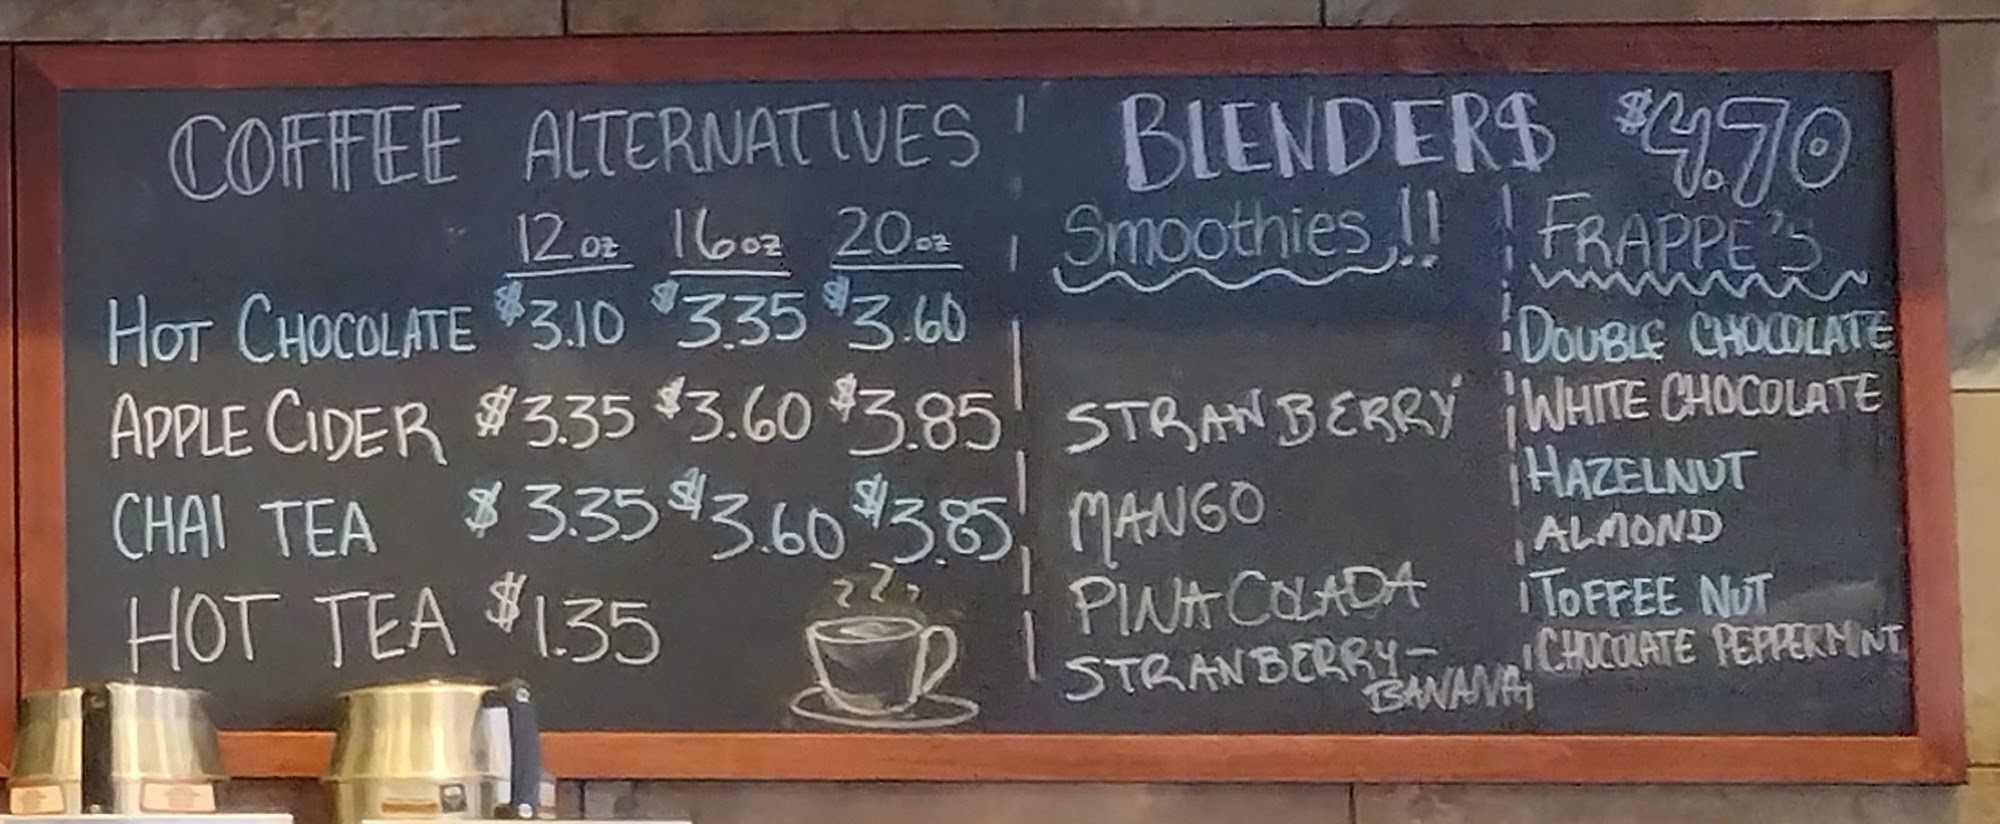 COFFEE ALTERNATIVES
12oz 16oz 20oz
HOT CHOCOLATE $3.10 $3.35 $3.60
APPLE CIDER $3.35 $3.60 $3.85
CHAI TEA $3.35 $3.60 $3.85
HOT TEA $1.35
BLENDER$ $4.70
Smoothies!!
STRAWBERRY
MANGO
PINA COLADA
STRAWBERRY-
BANANA
FRAPPE'S
DOUBLE CHOCOLATE
WHITE CHOCOLATE
HAZELNUT
ALMOND
TOFFEE NUT
CHOCOLATE PEPPERMINT